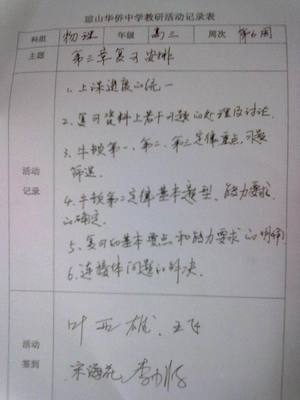 琼山华侨中学教研活动记录表
科组 物理 年级 高三 周次 第6周
主题 第三章复习安排
活动记录
1. 上课进度的统一
2. 复习资料上若干问题的处理及讨论.
3. 牛顿第一、第二、第三定律重点习题
筛选.
4. 牛顿第二定律基本题型、能力要求
的确定.
5. 复习的基本要点和能力要求的明确
6. 连接体问题的解决.
活动签到
叶亚雄 王飞
宋海花